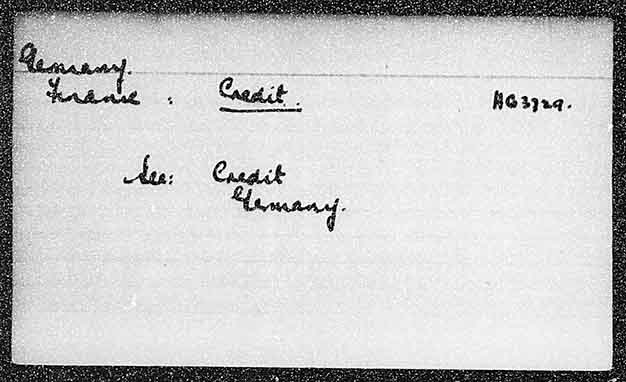 Germany.
Finance : Credit. HG3729.
See: Credit
Germany.